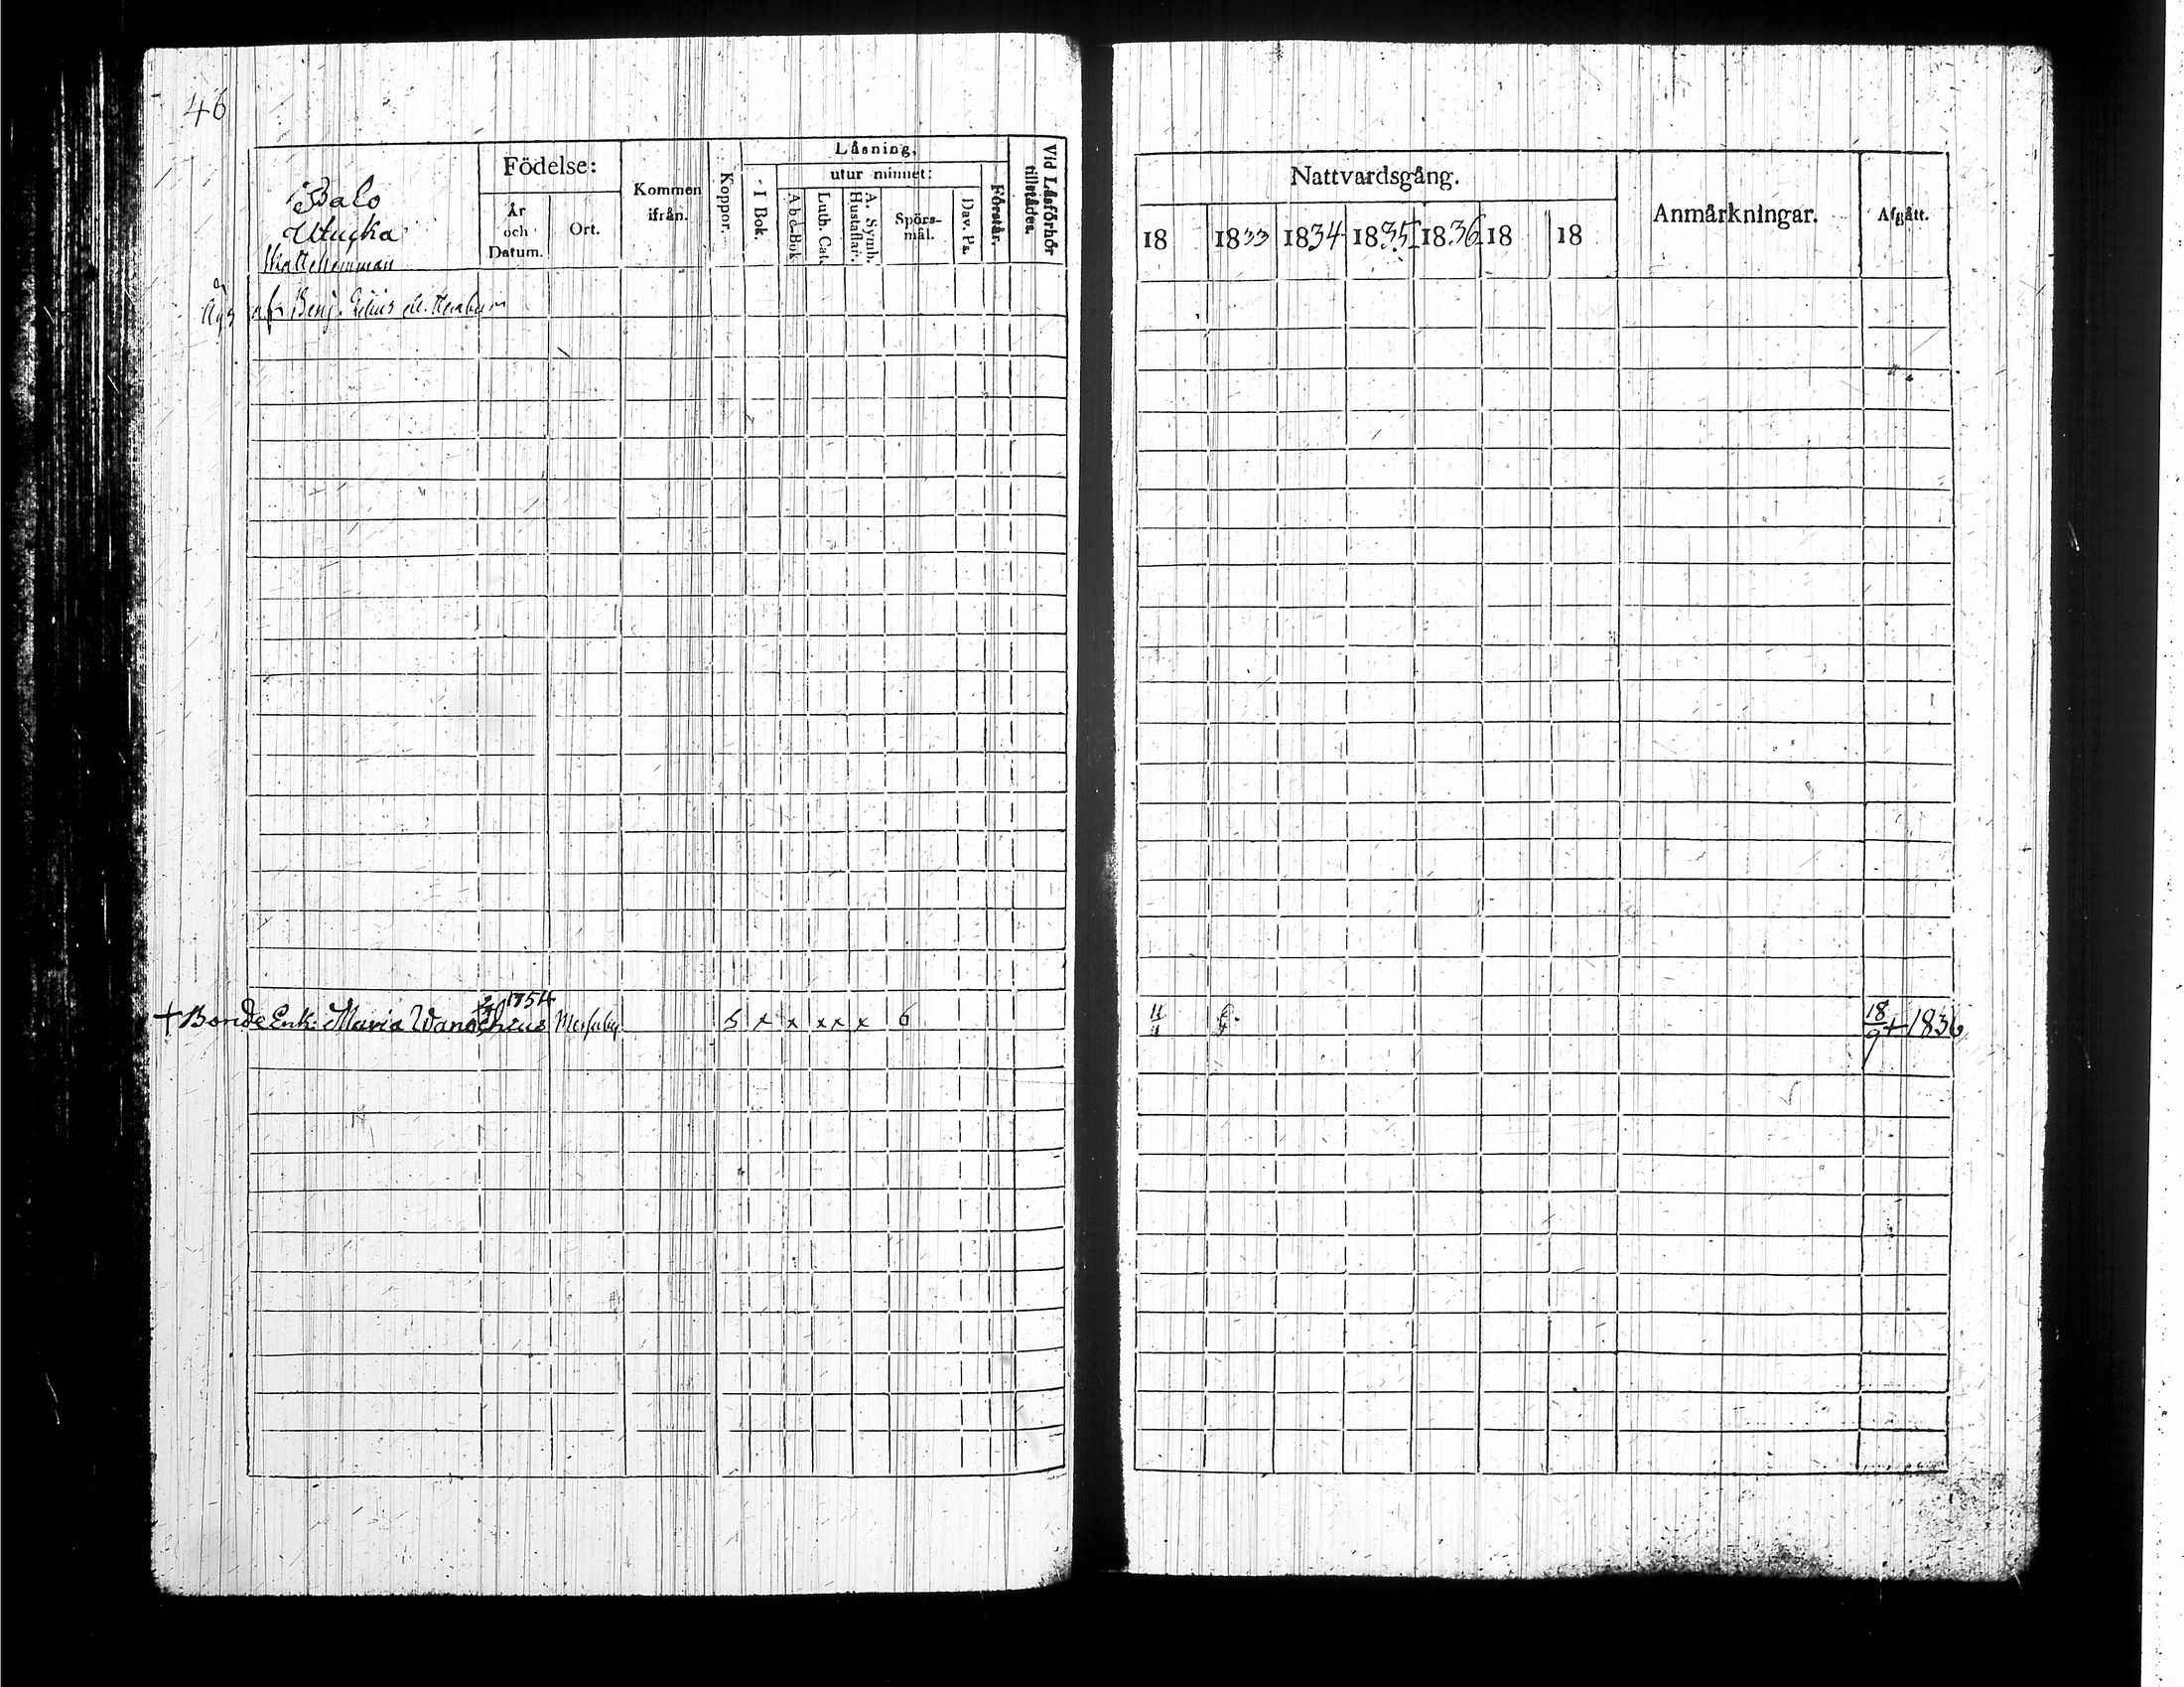 46
Balo
Utucka
Födelse:
År
och
Datum.
Ort.
Kommen
ifrån.
Koppor.
Låsning,
I Bok.
utur minnet:
A b c-Bok
Luth. Cat.
A. Symb.
Hustaflar.
Spörs-
mål.
Dav. Ps.
Förstår.
Vid Låsförhör
tillstådes.
af Benj.
+ Bonde Enk: Maria 1754
S x x x x x 6
Nattvardsgång.
18 1833 1834 1835 1836 18 18
Anmårkningar.
Afgått.
11
18/9 + 1836